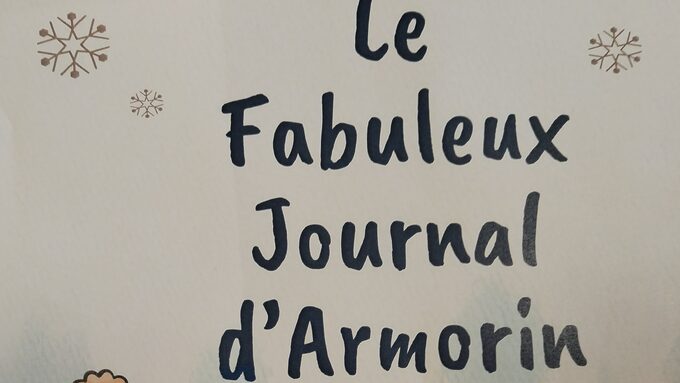 Le
Fabuleux
Journal
d'Armorin